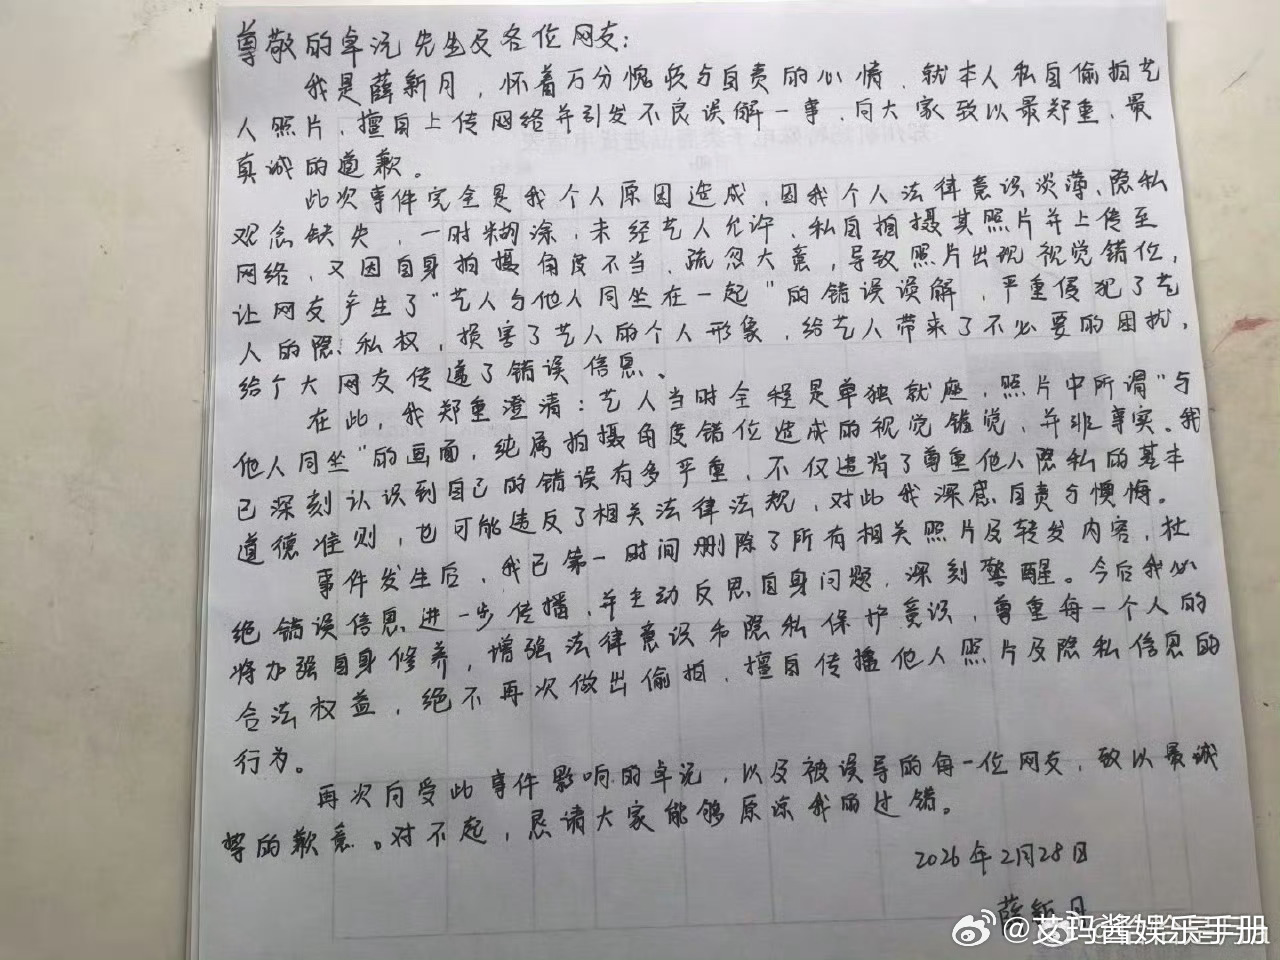 尊敬的卓沅先生及各位网友:
我是薛新月,怀着万分愧疚与自责的心情,就本人私自偷拍艺
人照片、擅自上传网络并引发不良误解一事,向大家致以最郑重、最
真诚的道歉。
此次事件完全是我个人原因造成,因我个人法律意识淡薄、隐私
观念缺失,一时糊涂,未经艺人允许,私自拍摄其照片并上传至
网络,又因自身拍摄角度不当,疏忽大意,导致照片出现视觉错位,
让网友产生了“艺人与他人同坐在一起”的错误误解,严重侵犯了艺
人的隐私权,损害了艺人的个人形象,给艺人带来了不必要的困扰,
给个大网友传递了错误信息。
在此,我郑重澄清:艺人当时全程是单独就座,照片中所谓“与
他人同坐”的画面,纯属拍摄角度错位造成的视觉错觉,并非事实。我
已深刻认识到自己的错误有多严重,不仅违背了尊重他人隐私的基本
道德准则,也可能违反了相关法律法规,对此我深感自责与懊悔。
事件发生后,我已第一时间删除了所有相关照片及转发内容,杜
绝错误信息进一步传播,并主动反思自身问题,深刻警醒。今后我必
将加强自身修养,增强法律意识和隐私保护意识,尊重每一个人的
合法权益,绝不再次做出偷拍、擅自传播他人照片及隐私信息的
行为。
再次向受此事件影响的卓沅,以及被误导的每一位网友,致以最诚
挚的歉意。对不起,恳请大家能够原谅我的过错。
2026年2月28日
薛新月
@艾玛酱娱乐手册